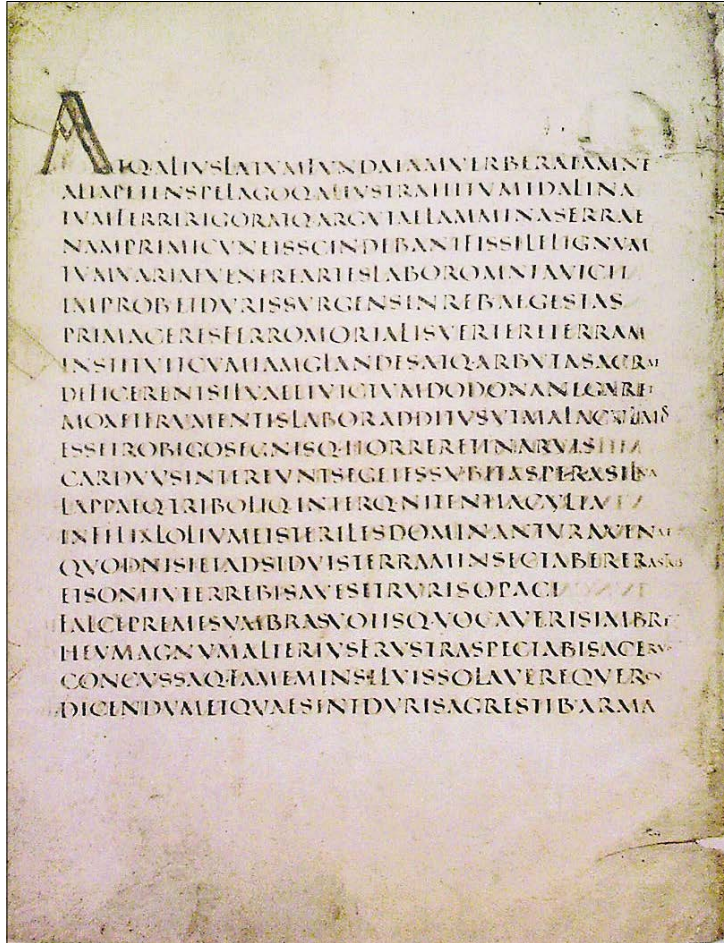 ATQ·ALIVSLATVMFVNDAIAMVERBERATAMNE
ALTAPETENSPELAGOQ·ALIVSTRAHITVMIDALINA
TVMFERRIRIGORATQ·ARGVTAELAMMINASERRAE
NAMPRIMICVNEISSCINDEBANTFISSILELIGNVM
TVMVARIAEVENEREARTESLABOROMNIAVICIT
IMPROBETDVRISSVRGENSINREBAEGESTAS
PRIMACERESFERROMORTALISVERTERETERRAM
INSTITVITCVMIAMGLANDESATQ·ARBVTASACRAE
DEFICERENTSILVAEETVICTVMDODONANEGARET
MOXETFRVMENTISLABORADDITVSVTMALACVLMOS
ESSETROBIGOSEGNISQ·HORRERETINARVIS
CARDVVSINTEREVNTSEGETESSVBITASPERASILVA
LAPPAEQ·TRIBOLIQ·INTERQ·NITENTIACVLTA
INFELIXLOLIVMETSTERILESDOMINANTVRAVENAE
QVODNISIETADSIDVISTERRAMINSECTABERERASTRIS
ETSONITVTERREBISAVESETRVRISOPACI
FALCEPREMESVMBRASVOTISQ·VOCAVERISIMBRE
HEVMAGNVMALTERIVSFRVSTRASPECTABISACERVV
CONCVSSAQ·FAMEMINSILVISSOLAVEREQVERCV
DICENDVMETQVAESINTDVRISAGRESTIB·ARMA